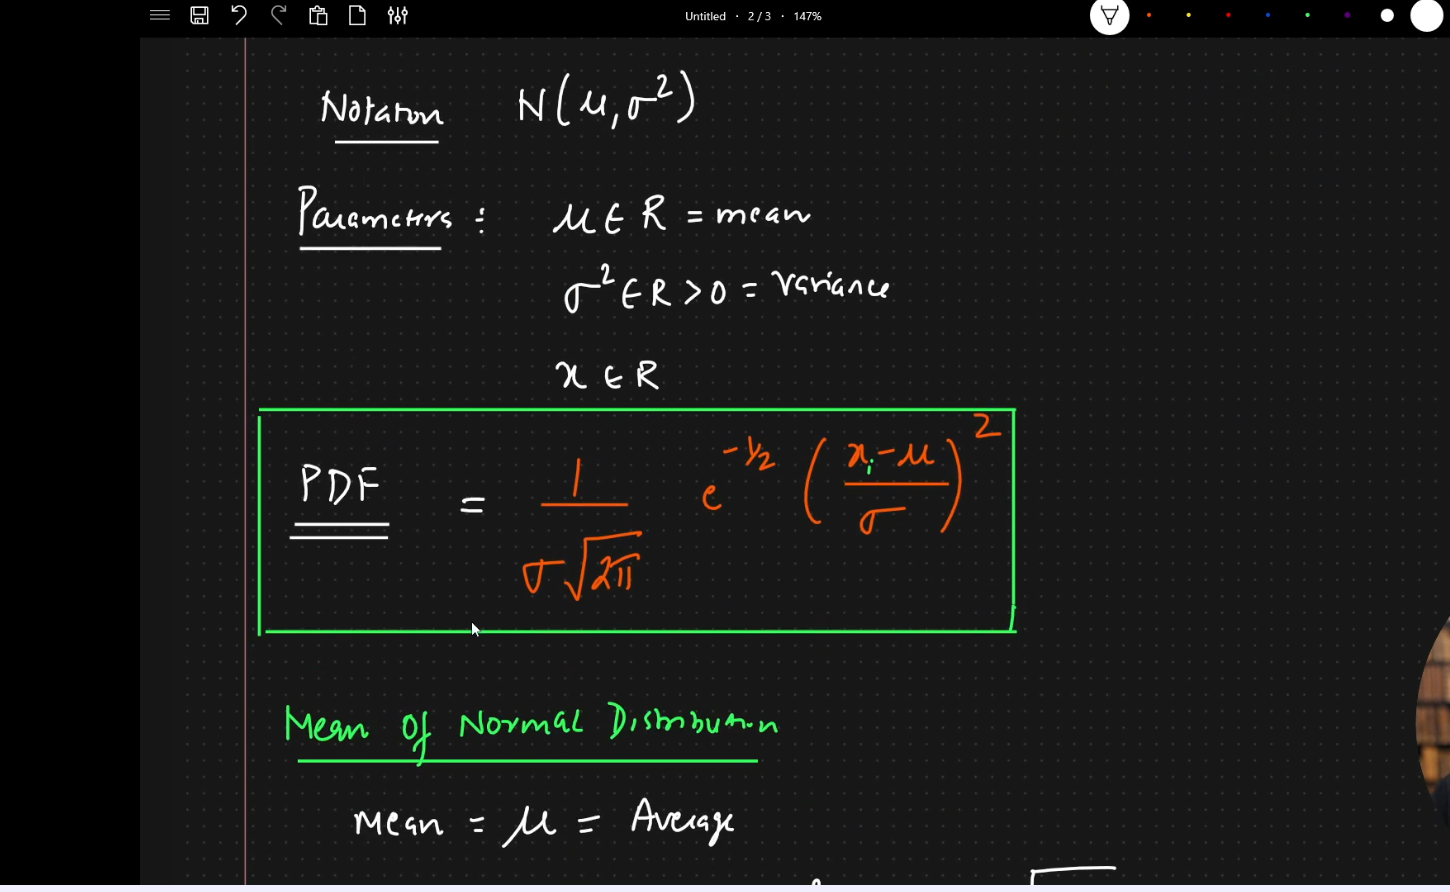 Untitled · 2 / 3 · 147%
Notation N(μ, σ²)
Parameters : μ ∈ R = mean
σ² ∈ R > 0 = variance
x ∈ R
PDF = 1 / σ√2π e^-1/2 ( xi - μ / σ )²
Mean of Normal Distribution
Mean = μ = Average